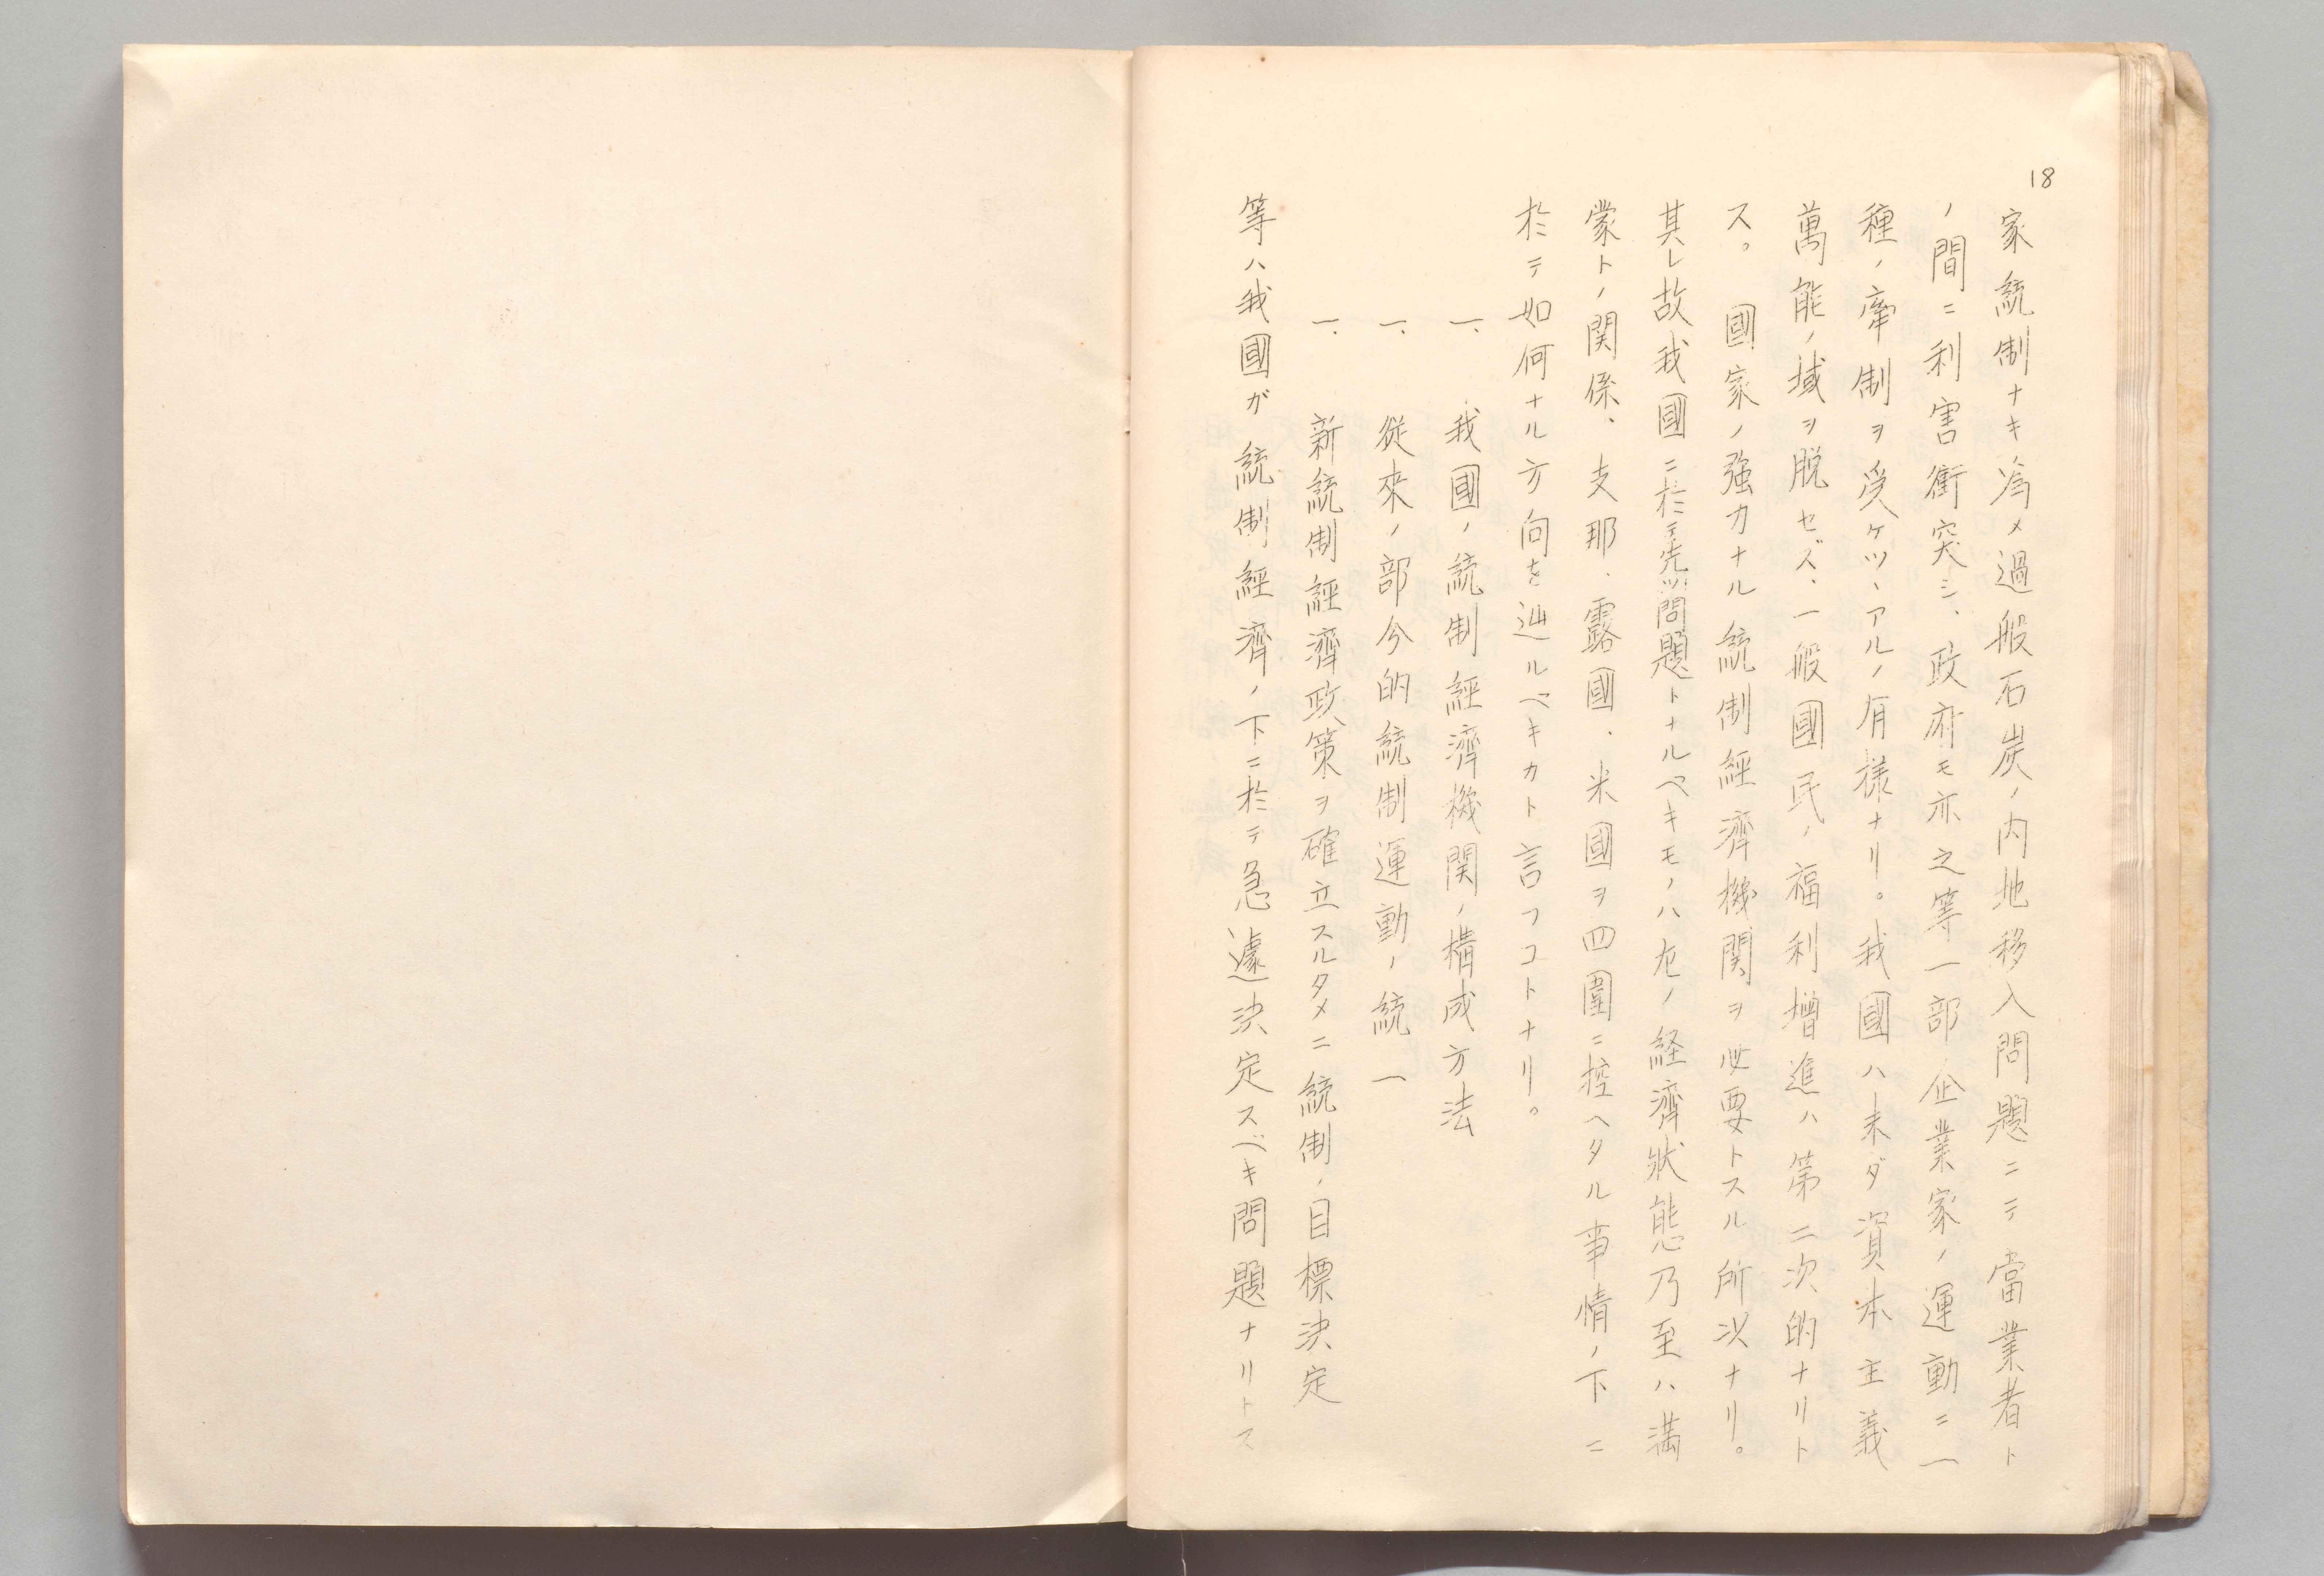 18
家統制ナキ為メ過般石炭ノ内地移入問題ニテ當業者ト
ノ間ニ利害衝突シ、政府モ亦之等一部企業家ノ運動ニ一
種ノ牽制ヲ受ケツヽアルノ有様ナリ。我國ハ未ダ資本主義
萬能ノ域ヲ脱セズ、一般國民ノ福利増進ハ第二次的ナリト
ス。國家ノ強力ナル統制經濟機関ヲ必要トスル所以ナリ。
其レ故我國ニ於テ先ヅ問題トナルベキモノハ左ノ経濟狀態乃至ハ満
蒙トノ関係、支那、露國、米國ヲ四圍ニ控ヘタル事情ノ下ニ
於テ如何ナル方向を辿ルベキカト言フコトナリ。
一、我國ノ統制經濟機関ノ構成方法
一、從來ノ部分的統制運動ノ統一
一、新統制經濟政策ヲ確立スルタメニ統制ノ目標決定
等ハ我國が統制經濟ノ下ニ於テ急遽決定スベキ問題ナリトス